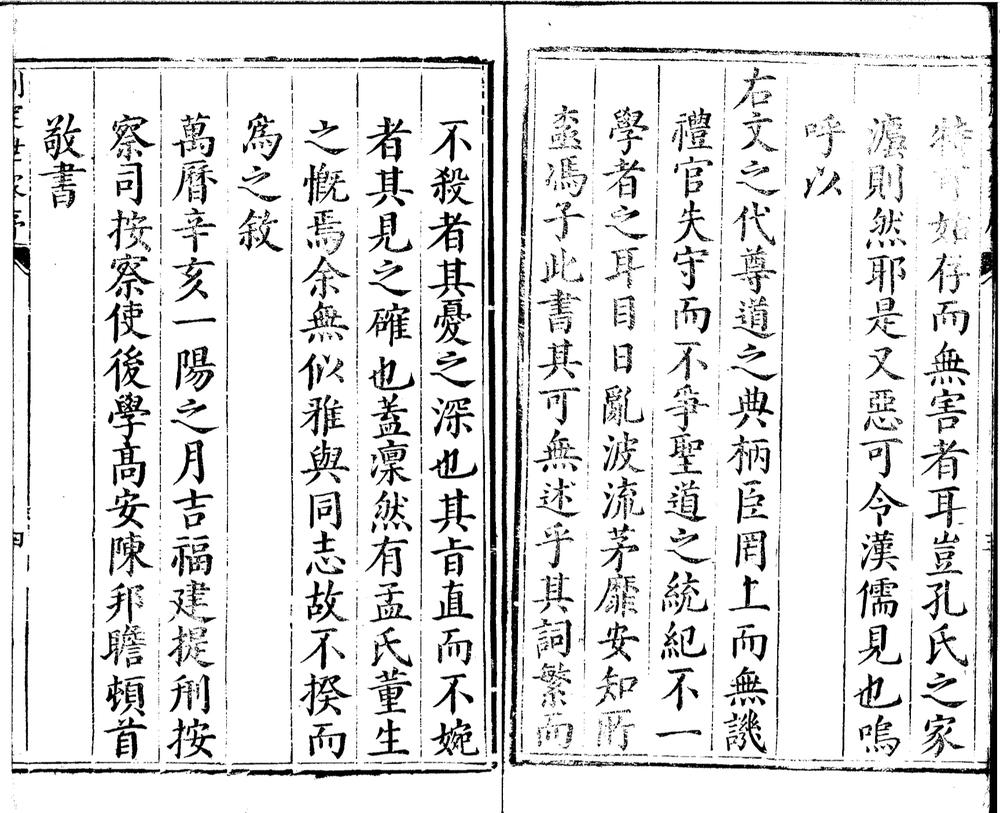 特可姑存而無害者耳豈孔氏之家
瀍則然耶是又惡可令漢儒見也嗚
呼以
右文之代尊道之典柄臣罔上而無譏
禮官失守而不爭聖道之統紀不一
學者之耳目日亂波流茅靡安知所
盡馮子此書其可無述乎其詞繁而
不殺者其憂之深也其㫖直而不婉
者其見之確也蓋凛然有孟氏董生
之慨焉余無似雅與同志故不揆而
爲之敘
萬曆辛亥一陽之月吉福建提刑按
察司按察使後學髙安陳邦瞻頓首
敬書
世家序
四